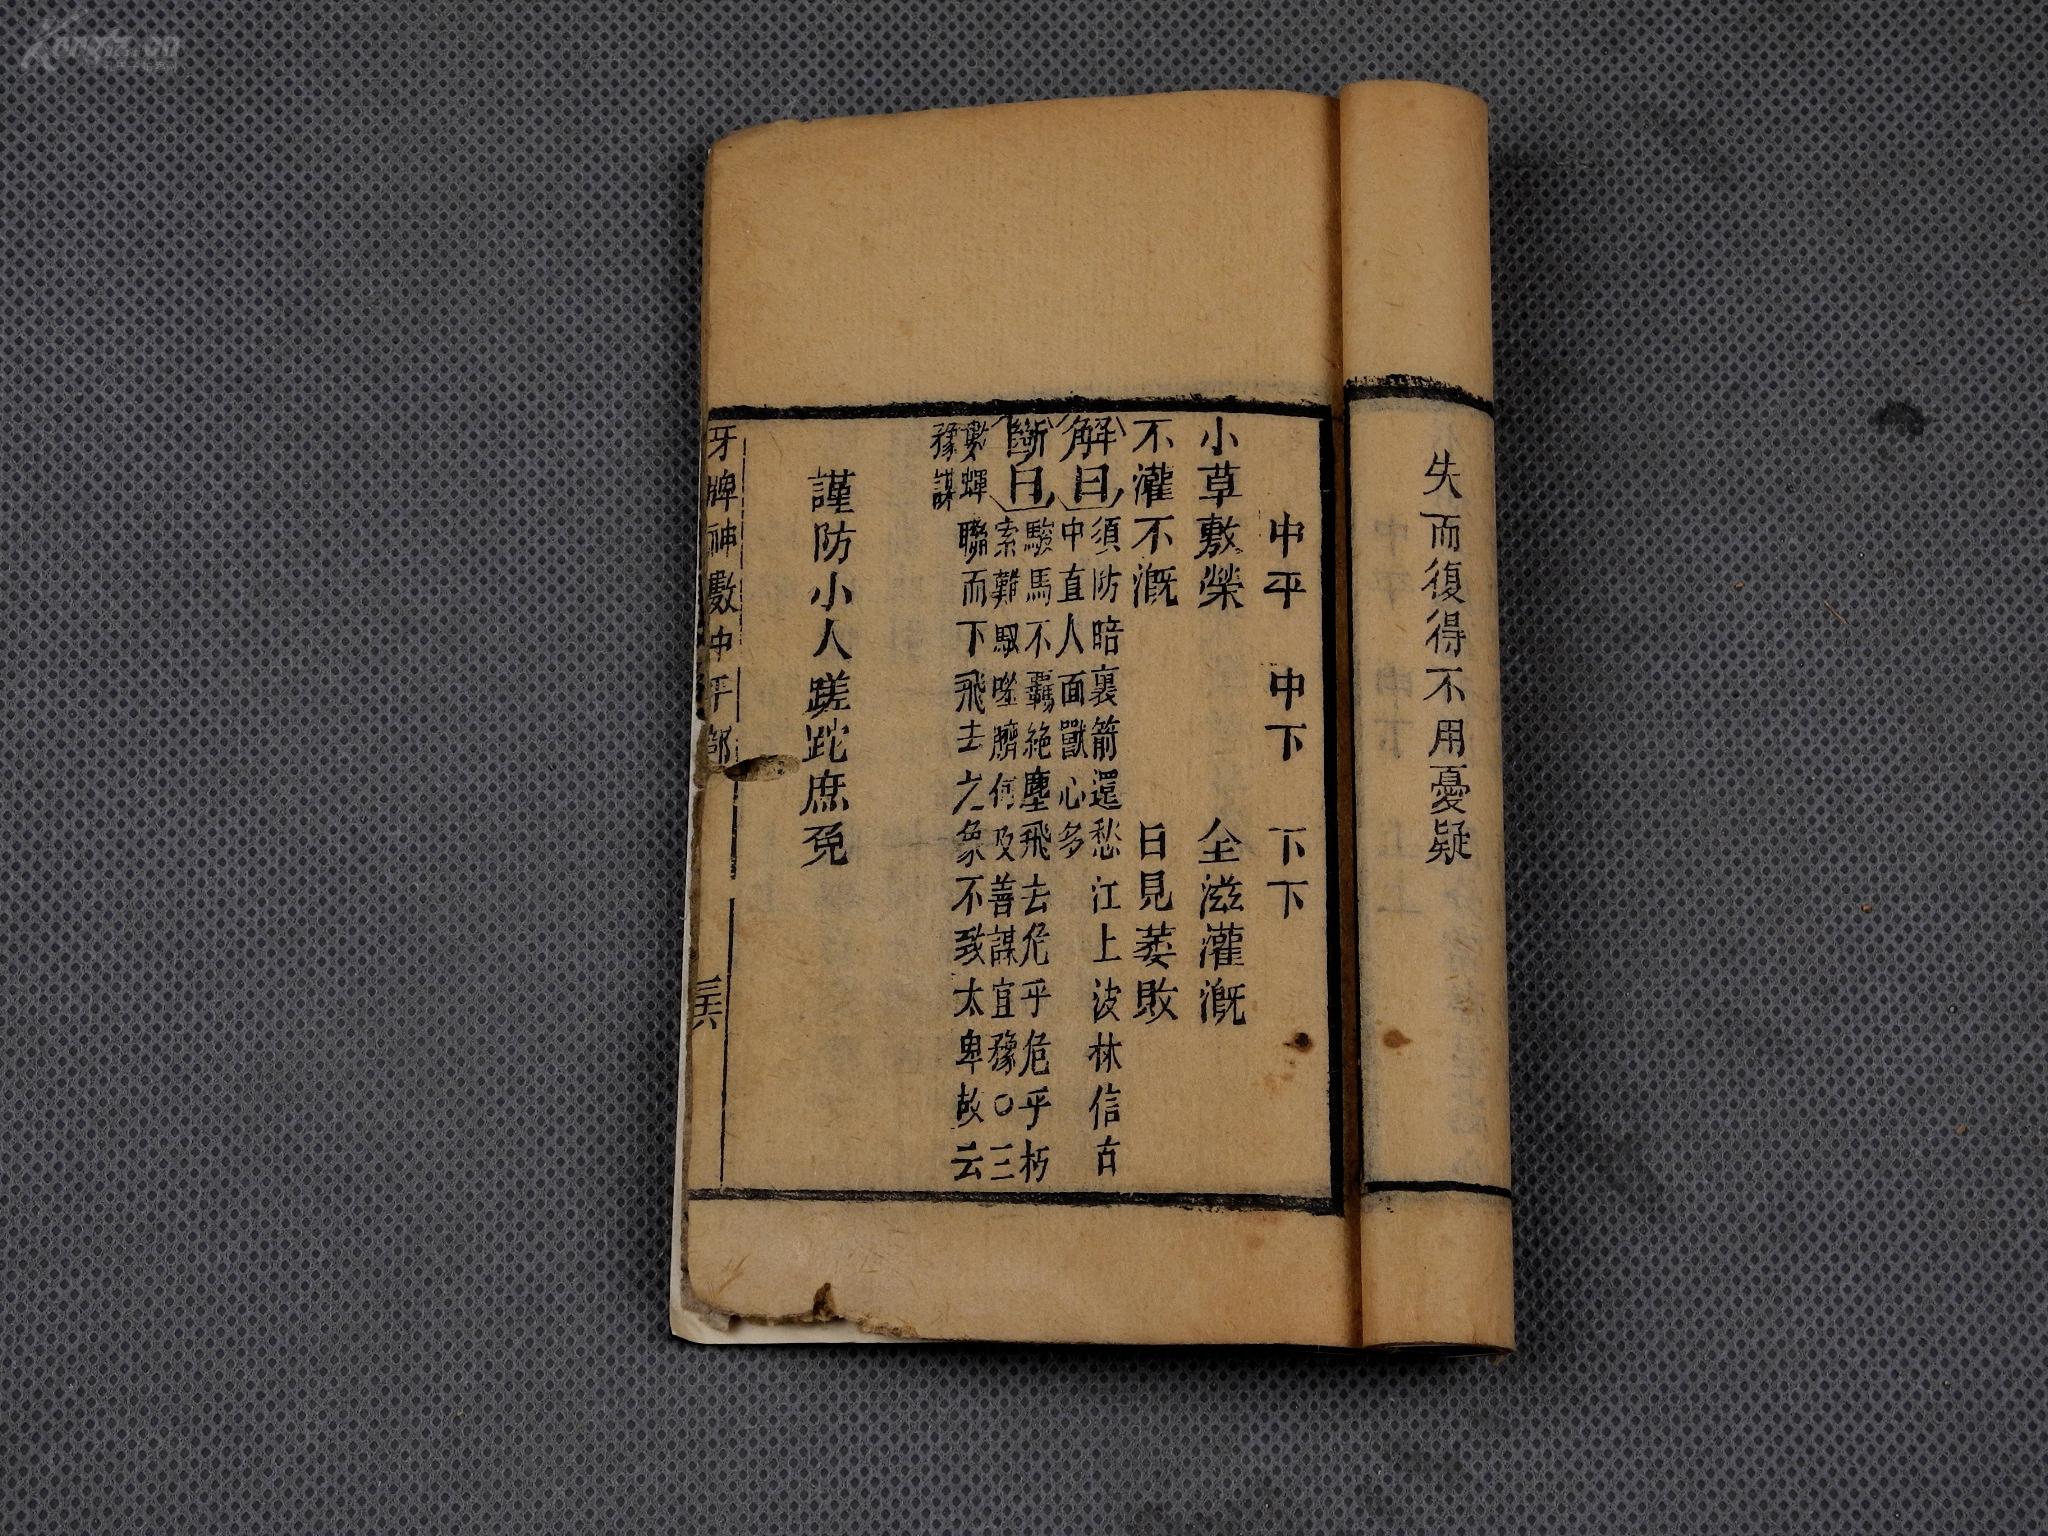 失而復得不用憂疑
中平 中下 下下
小草敷榮 全滋灌溉
不灌不溉 日見萎敗
解曰 須防暗裏箭還愁江上波林信古
中直人面獸心多
斷曰 駿馬不羈絶塵飛去危乎危乎朽
索難馭噬臍何及善謀宜豫○三
數蟬聯而下飛去之象不致太卑故云
豫謀
謹防小人蹉跎庶免
牙牌神數中平部
三六